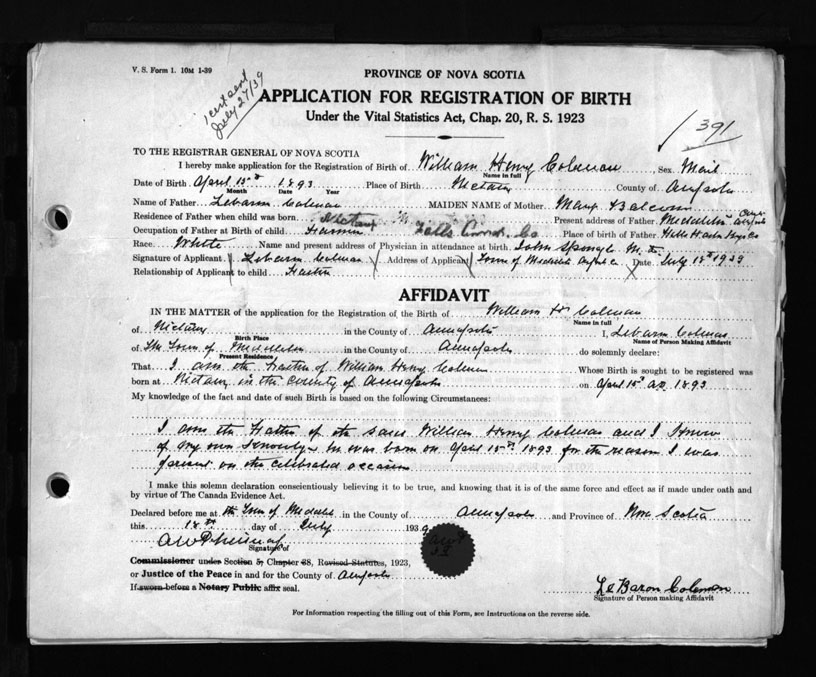 V. S. Form 1. 10M 1-39
1 cert sent
July 27/39
PROVINCE OF NOVA SCOTIA
APPLICATION FOR REGISTRATION OF BIRTH
Under the Vital Statistics Act, Chap. 20, R. S. 1923
391
TO THE REGISTRAR GENERAL OF NOVA SCOTIA
I hereby make application for the Registration of Birth of William Henry Coleman Sex Male
Name in full
Date of Birth April 15th 1893 Place of Birth Nictaux County of Annapolis
Month Date Year
Name of Father Lebaron Colman MAIDEN NAME of Mother Mary Balcom
Residence of Father when child was born Nictaux Present address of Father Middleton
Occupation of Father at Birth of child Farmer Falls Place of birth of Father
Race White Name and present address of Physician in attendance at birth John Sponagle
Signature of Applicant Lebaron Colman Address of Applicant Town of Middleton Date July 18th 1939
Relationship of Applicant to child Father
AFFIDAVIT
IN THE MATTER of the application for the Registration of the Birth of William H Colman
Name in full
of Nictaux in the County of Annapolis I, Lebaron Colman
Birth Place Name of Person Making Affidavit
of the Town of Middleton in the County of Annapolis do solemnly declare:
Present Residence
That I am the Father of William Henry Colman Whose Birth is sought to be registered was
born at Nictaux in the County of Annapolis on April 15th AD 1893
My knowledge of the fact and date of such Birth is based on the following Circumstances:
I am the Father of the said William Henry Colman and I know
of my own knowledge he was born on April 15th 1893 for the reason I was
present on the celebrated occasion
I make this solemn declaration conscientiously believing it to be true, and knowing that it is of the same force and effect as if made under oath and
by virtue of The Canada Evidence Act.
Declared before me at the Town of Middleton in the County of Annapolis and Province of Nova Scotia
this 18th day of July 1939
Signature of
Commissioner under Section 5, Chapter 38, Revised Statutes, 1923,
or Justice of the Peace in and for the County of Annapolis
If sworn before a Notary Public affix seal.
Le Baron Coleman
Signature of Person making Affidavit
For Information respecting the filling out of this Form, see Instructions on the reverse side.